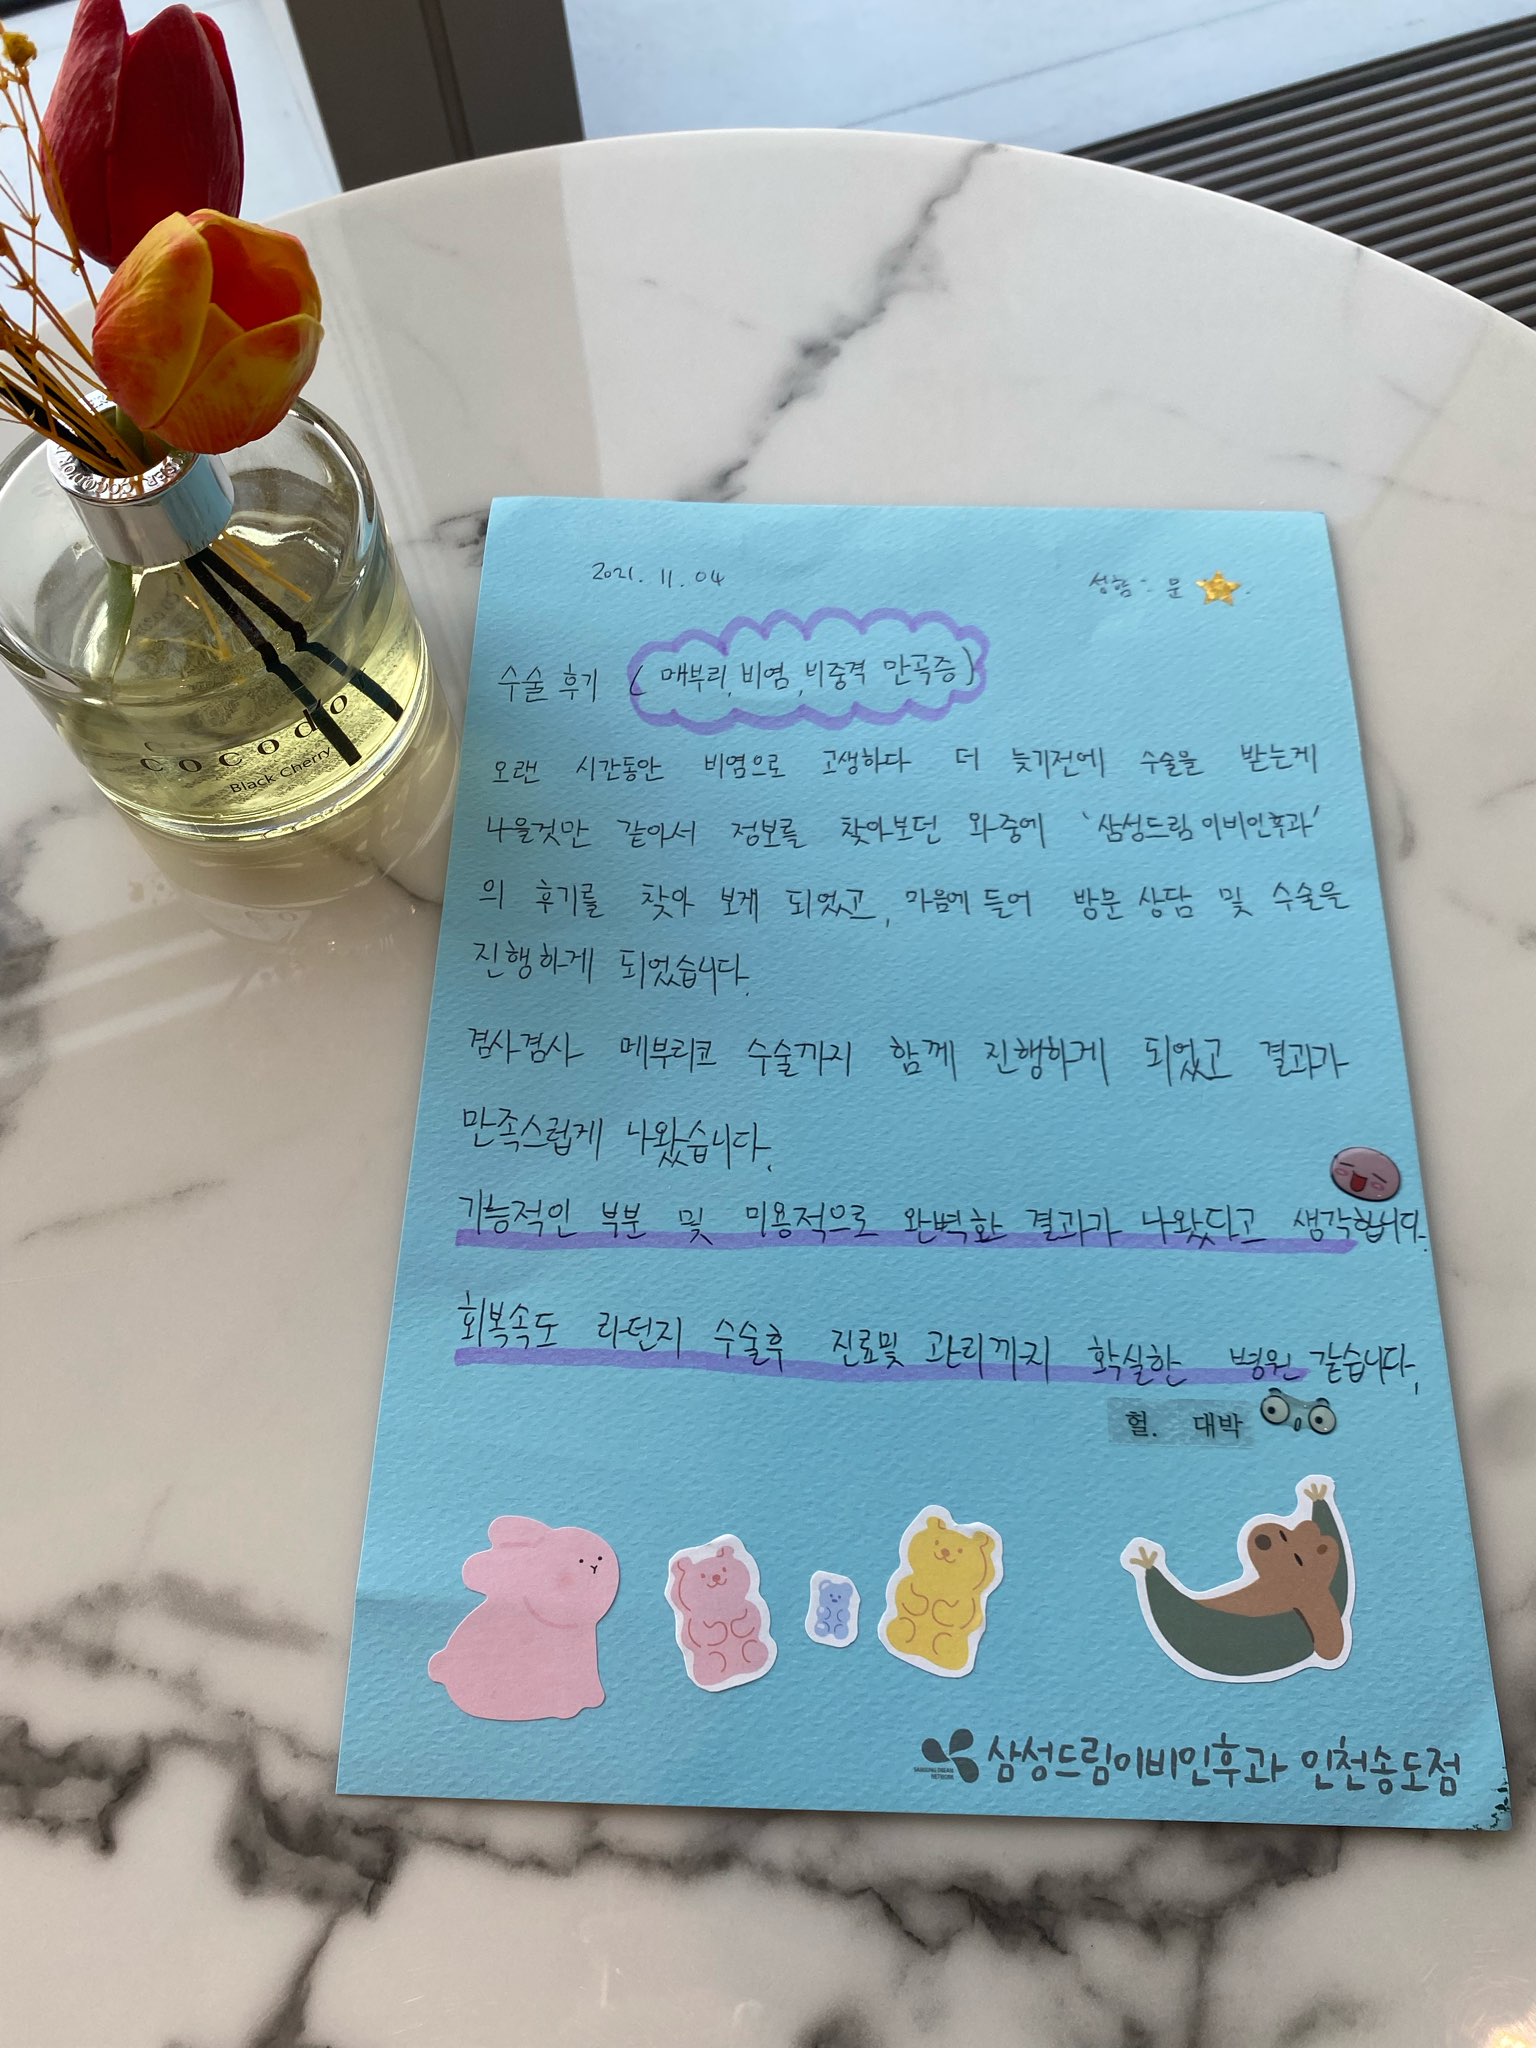 2021. 11. 04
성함 : 문
수술 후기 ( 매부리, 비염, 비중격 만곡증)
오랜 시간동안 비염으로 고생하다 더 늦기전에 수술을 받는게
나을것만 같아서 정보를 찾아보던 와중에 '삼성드림이비인후과'
의 후기를 찾아 보게 되었고, 마음에 들어 방문 상담 및 수술을
진행하게 되었습니다.
겸사겸사 메부리코 수술까지 함께 진행하게 되었고 결과가
만족스럽게 나왔습니다.
기능적인 부분 및 미용적으로 완벽한 결과가 나왔다고 생각합니다.
회복속도 라던지 수술후 진료및 관리까지 확실한 병원 같습니다.
헐. 대박
SAMSUNG DREAM
NETWORK
삼성드림이비인후과 인천송도점
cocodo
Black Cherry